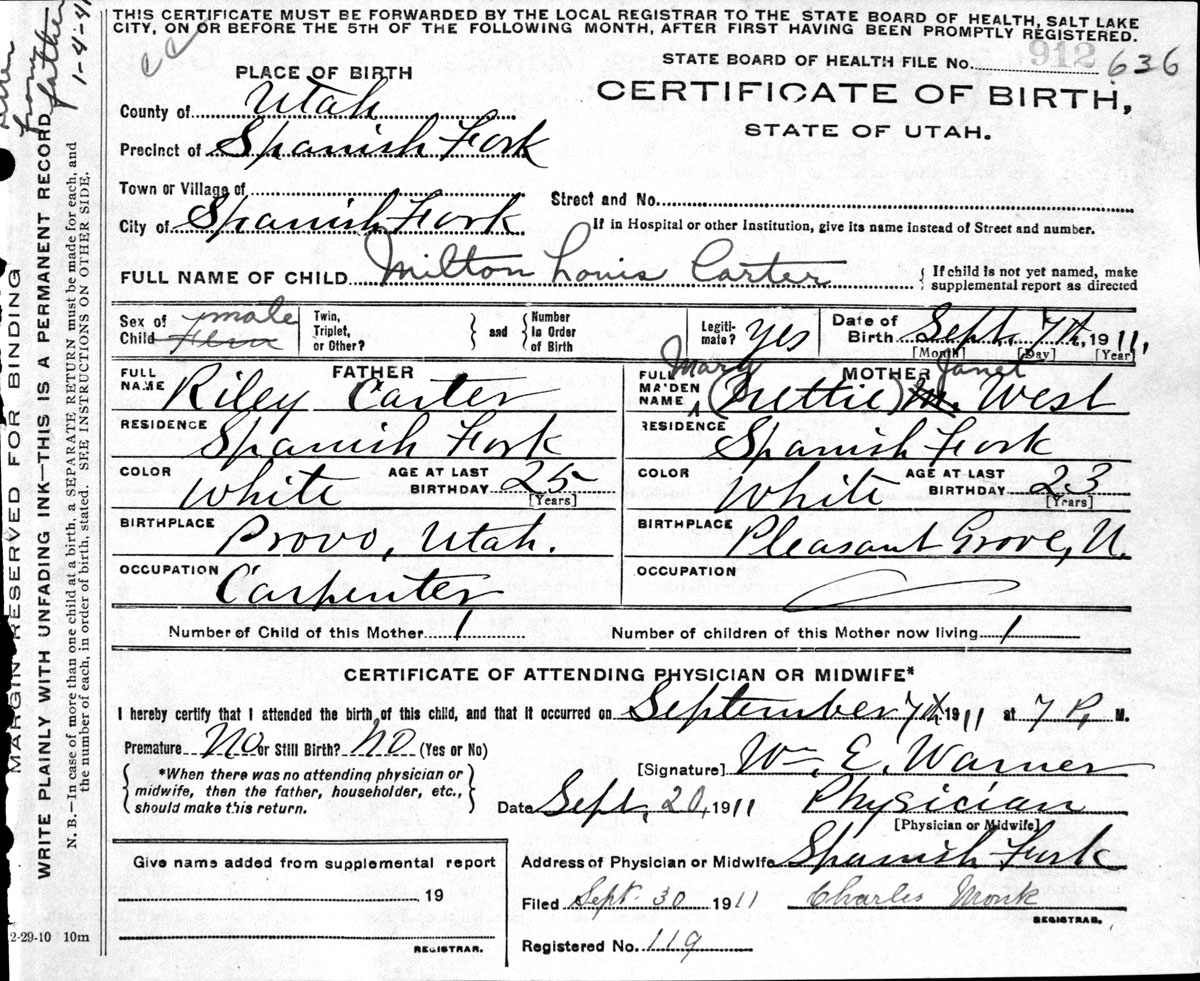 THIS CERTIFICATE MUST BE FORWARDED BY THE LOCAL REGISTRAR TO THE STATE BOARD OF HEALTH, SALT LAKE
CITY, ON OR BEFORE THE 5TH OF THE FOLLOWING MONTH, AFTER FIRST HAVING BEEN PROMPTLY REGISTERED.
STATE BOARD OF HEALTH FILE No. 912 636
CERTIFICATE OF BIRTH,
STATE OF UTAH.
PLACE OF BIRTH
County of Utah
Precinct of Spanish Fork
Town or Village of
Street and No.
City of Spanish Fork
If in Hospital or other Institution, give its name instead of Street and number.
FULL NAME OF CHILD Milton Louis Carter
{ If child is not yet named, make
supplemental report as directed
Sex of Child male
Twin, Triplet, or Other? } and { Number In Order of Birth
Legiti-mate? Yes
Date of Birth Sept. 7th, 1911,
[Month] [Day] [Year]
FATHER
FULL NAME Riley Carter
RESIDENCE Spanish Fork
COLOR White AGE AT LAST BIRTHDAY 25
[Years]
BIRTHPLACE Provo, Utah.
OCCUPATION Carpenter
MOTHER
FULL MAIDEN NAME Mary (Nettie) M. Janet West
RESIDENCE Spanish Fork
COLOR White AGE AT LAST BIRTHDAY 23
[Years]
BIRTHPLACE Pleasant Grove, U.
OCCUPATION
Number of Child of this Mother 1 Number of children of this Mother now living 1
CERTIFICATE OF ATTENDING PHYSICIAN OR MIDWIFE*
I hereby certify that I attended the birth of this child, and that it occurred on September 7th 1911 at 7 P. M.
Premature No or Still Birth? No (Yes or No)
{ *When there was no attending physician or
midwife, then the father, householder, etc.,
should make this return. }
[Signature] Wm. E. Warner
Date Sept. 20, 1911 Physician
[Physician or Midwife]
Address of Physician or Midwife Spanish Fork
Filed Sept. 30 1911 Charles Monk
REGISTRAR.
Registered No. 119
Give name added from supplemental report
19
REGISTRAR.
2-29-10 10m
MARGIN RESERVED FOR BINDING
WRITE PLAINLY WITH UNFADING INK—THIS IS A PERMANENT RECORD
N. B.—In case of more than one child at a birth, a SEPARATE RETURN must be made for each, and
the number of each, in order of birth, stated. SEE INSTRUCTIONS ON OTHER SIDE.
from
father
1-4-41